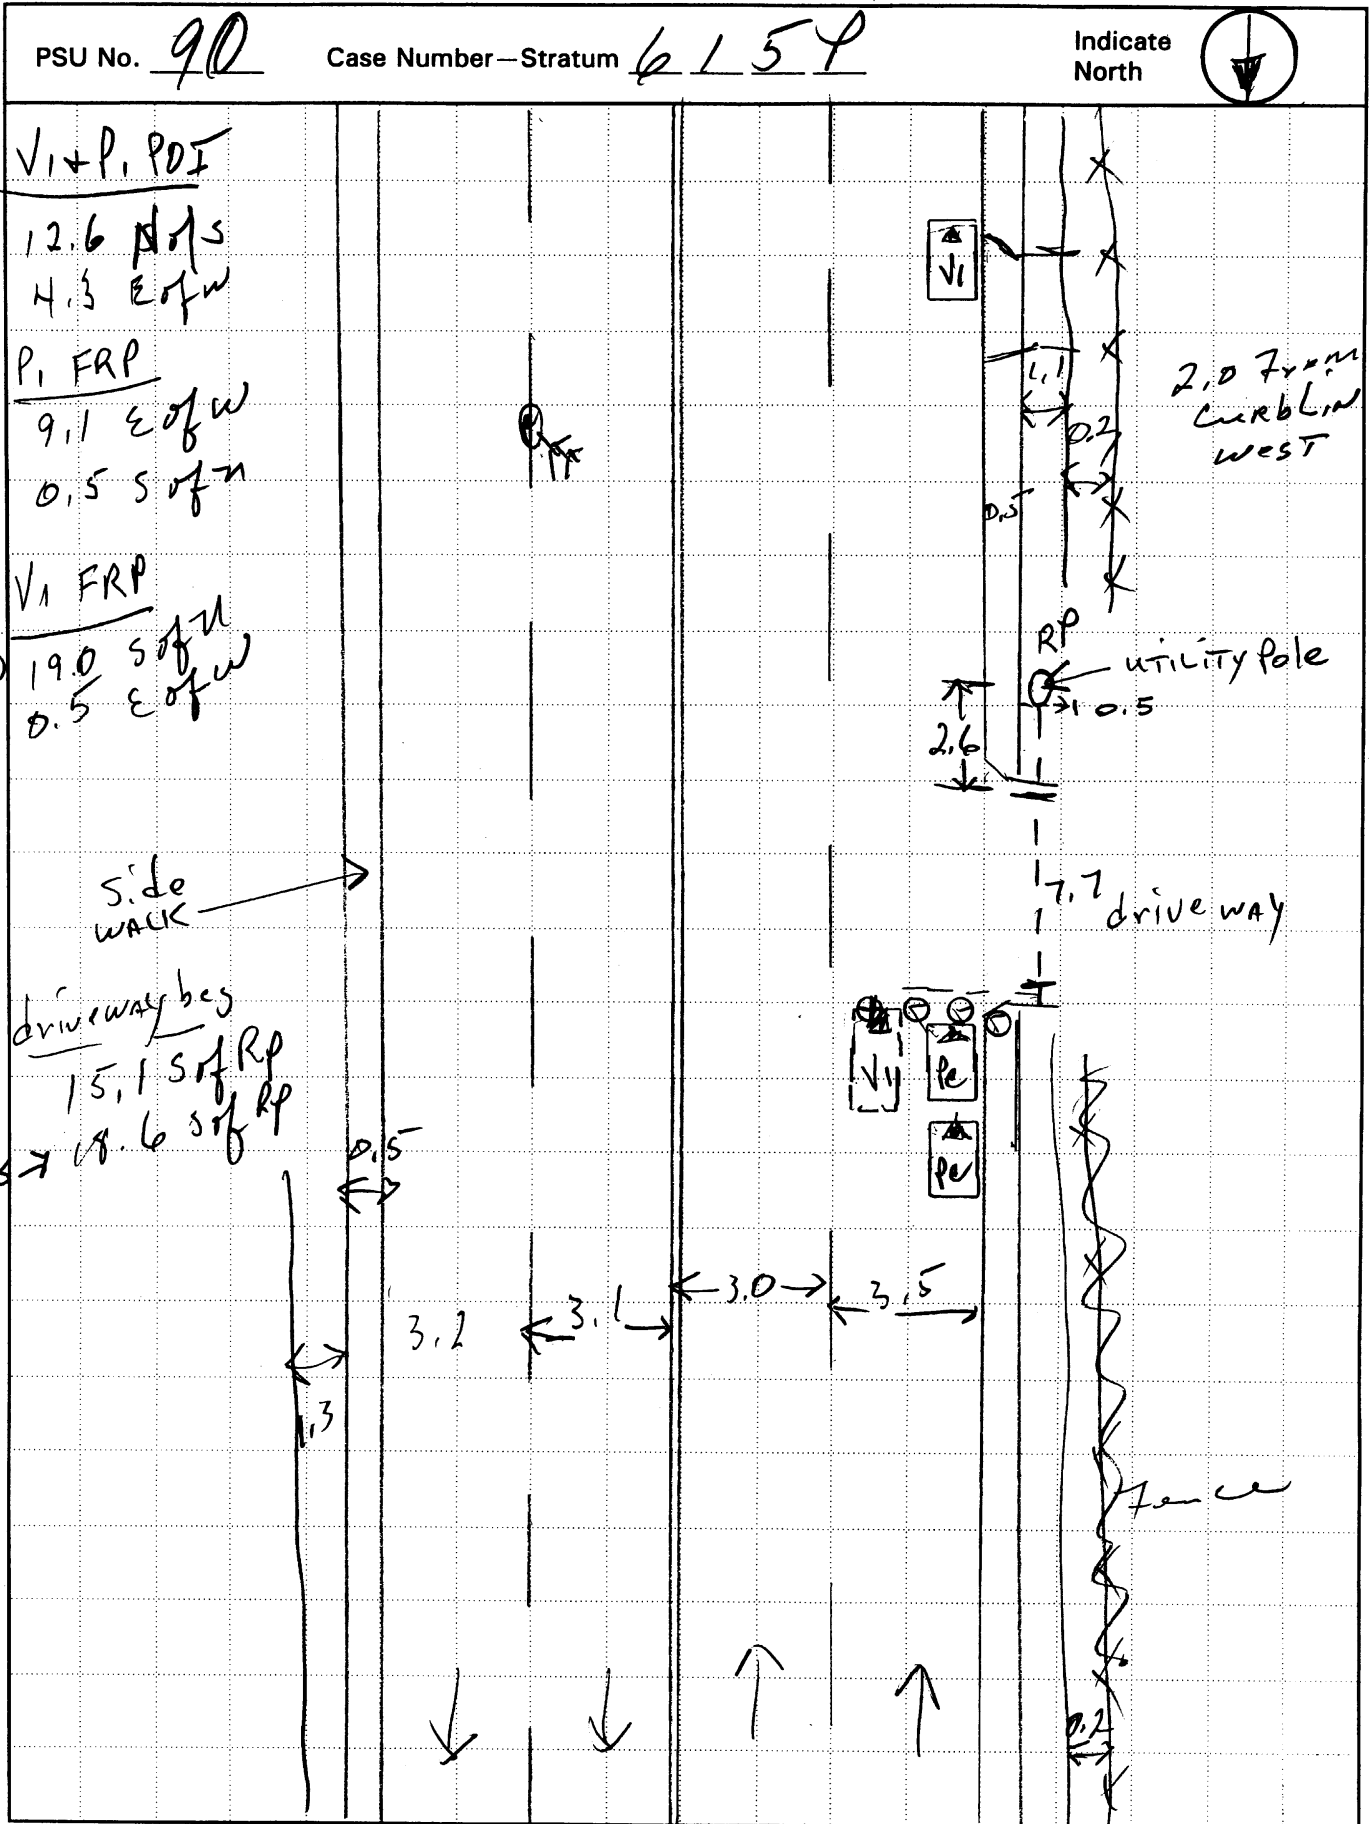 PSU No. 90 Case Number—Stratum 6 1 5 P Indicate North
V1 + P1 POI
12.6 N of S
4.3 E of W
P1 FRP
9.1 E of W
0.5 S of N
V1 FRP
19.0 S of N
0.5 E of W
side
WALK
driveway beg
15.1 S of RP
18.6 S of RP
V1
1.1
0.2
0.5
2.0 From
curbLin
WEST
RP
UTILITY Pole
0.5
2.6
7.7
drive way
V1
Pc
Pc
0.5
3.0
3.5
3.1
3.2
1.3
Fence
0.2